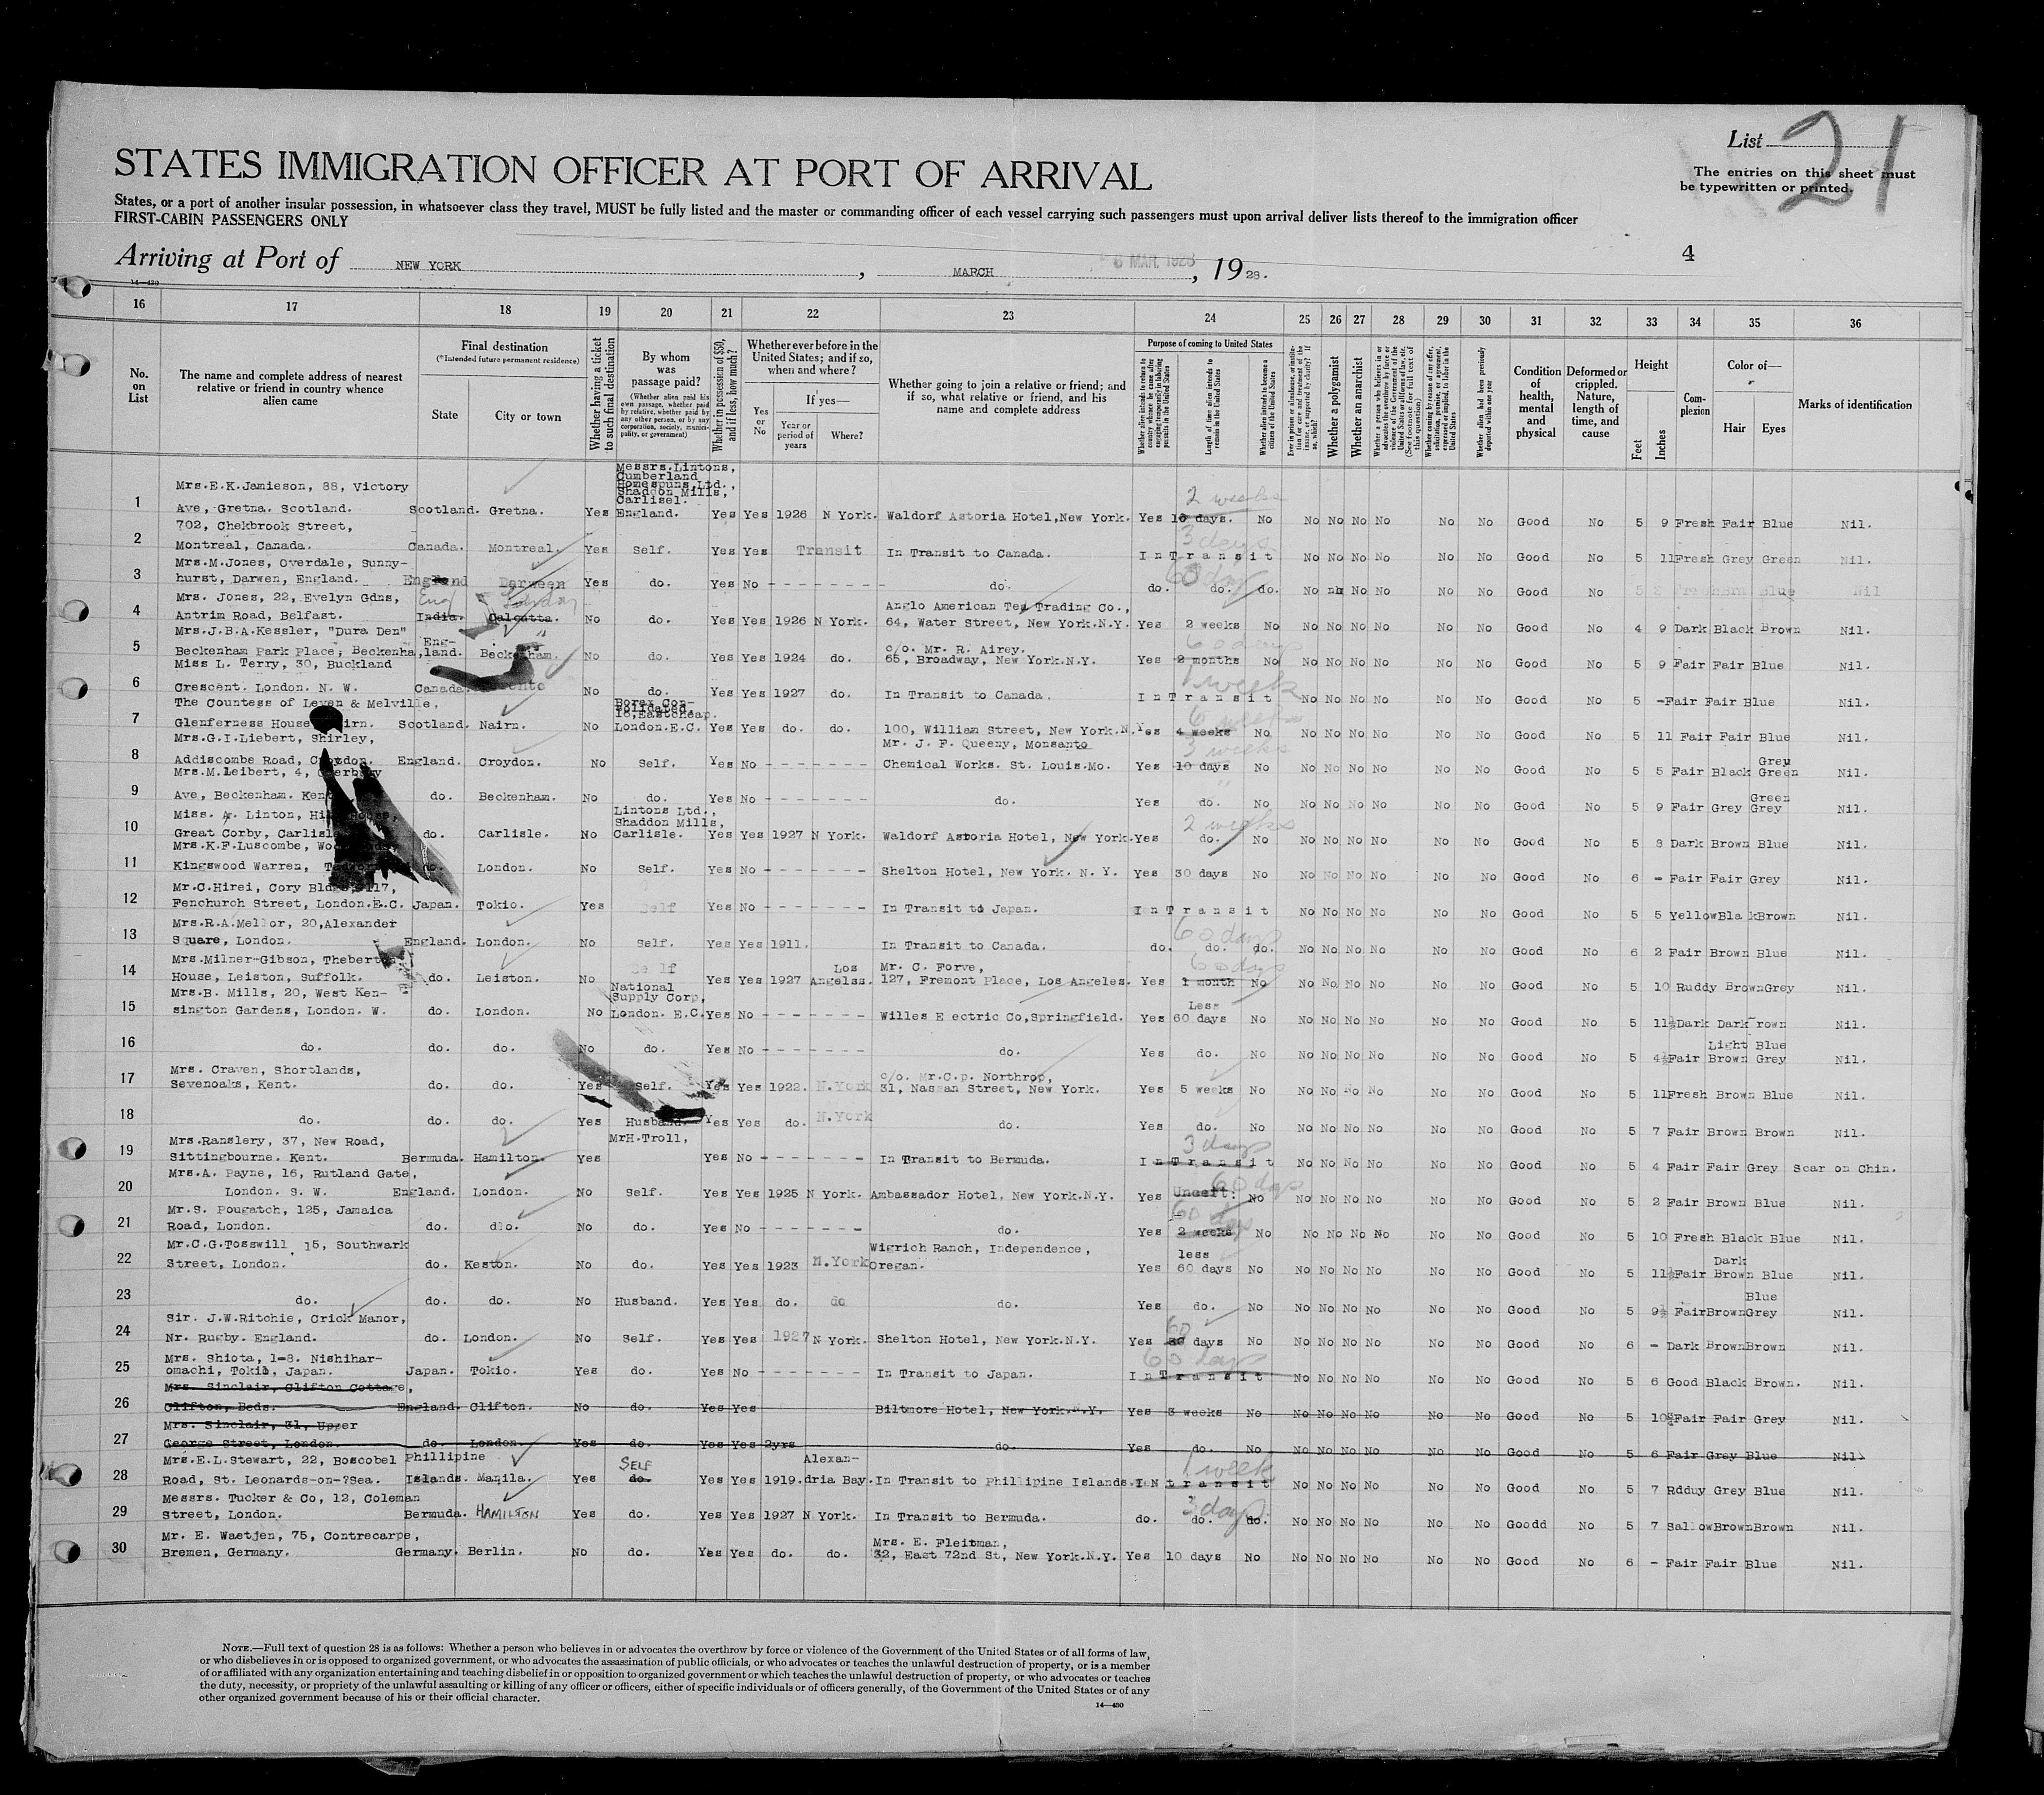 List 21
STATES IMMIGRATION OFFICER AT PORT OF ARRIVAL
The entries on this sheet must
be typewritten or printed.
States, or a port of another insular possession, in whatsoever class they travel, MUST be fully listed and the master or commanding officer of each vessel carrying such passengers must upon arrival deliver lists thereof to the immigration officer
FIRST-CABIN PASSENGERS ONLY
4
Arriving at Port of NEW YORK, MARCH 6 MAR. 1928, 1928.
14—430
16 17 18 19 20 21 22 23 24 25 26 27 28 29 30 31 32 33 34 35 36
No. on List
The name and complete address of nearest relative or friend in country whence alien came
Final destination
(*Intended future permanent residence)
State City or town
Whether having a ticket to such final destination
By whom was passage paid?
(Whether alien paid his own passage, whether paid by relative, whether paid by any other person, or by any corporation, society, municipality, or government)
Whether in possession of $50, and if less, how much?
Whether ever before in the United States; and if so, when and where?
Yes or No
If yes—
Year or period of years Where?
Whether going to join a relative or friend; and if so, what relative or friend, and his name and complete address
Purpose of coming to United States
Whether alien intends to return to country whence he came after engaging temporarily in laboring pursuits in the United States
Length of time alien intends to remain in the United States
Whether alien intends to become a citizen of the United States
Whether a polygamist
Whether an anarchist
Whether alien had been previously deported within one year
Condition of health, mental and physical
Deformed or crippled. Nature, length of time, and cause
Height
Feet Inches
Complexion
Color of—
Hair Eyes
Marks of identification
1 Mrs.E.K.Jamieson, 88, Victory
Ave, Gretna. Scotland. Scotland. Gretna. Yes Messrs.Lintons, Cumberland Homespuns,Ltd., Shaddon Mills, Carlisel. England. Yes Yes 1926 N York. Waldorf Astoria Hotel,New York. Yes 10 days. 2 weeks No No No No No No No Good No 5 9 Fresh Fair Blue Nil.
2 702, Chekbrook Street,
Montreal, Canada. Canada. Montreal. Yes Self. Yes Yes Transit In Transit to Canada. In Transit 3 days No No No No No No Good No 5 11 Fresh Grey Green Nil.
3 Mrs.M.Jones, Overdale, Sunny-
hurst, Darwen, England. England Darween Yes do. Yes No - - - - - - - do. do. do. do. 60 days No No No No No No Good No 5 Blue Nil
4 Mrs. Jones, 22, Evelyn Gdns,
Antrim Road, Belfast. India. Calcutta. Eng London No do. Yes Yes 1926 N York. Anglo American Tea Trading Co., 64, Water Street, New York.N.Y. Yes 2 weeks No No No No No No No Good No 4 9 Dark Black Brown Nil.
5 Mrs.J.B.A.Kessler, "Dura Den"
Beckenham Park Place, Beckenha, Eng-land. Beckenham. No do. Yes Yes 1924 do. c/o. Mr. R. Airey. 65, Broadway, New York.N.Y. Yes 2 months 60 days No No No No No No No Good No 5 9 Fair Fair Blue Nil.
6 Miss L. Terry, 30, Buckland
Crescent. London. N. W. Canada. No do. Yes Yes 1927 do. In Transit to Canada. In Transit 1 week No No No No No No Good No 5 - Fair Fair Blue Nil.
7 The Countess of Leven & Melville,
Glenferness House Scotland. Nairn. No Borax Con-solidated, 16,Eastcheap. London.E.C. Yes Yes do. do. 100, William Street, New York.N. Yes 4 weeks 6 weeks No No No No No No No Good No 5 11 Fair Fair Blue Nil.
8 Mrs.G.I.Liebert, Shirley,
Addiscombe Road, Croydon. England. Croydon. No Self. Yes No - - - - - - - Mr. J. F. Queeny, Monsanto Chemical Works. St. Louis.Mo. Yes 10 days 3 weeks No No No No No No No Good No 5 5 Fair Black Grey Green Nil.
9 Mrs.M.Leibert, 4,
Ave, Beckenham. Kent do. Beckenham. No do. Yes No - - - - - - - do. Yes do. No No No No No No No Good No 5 9 Fair Grey Green Grey Nil.
10 Miss. A. Linton,
Great Corby, Carlisle do. Carlisle. No Lintons Ltd., Shaddon Mills, Carlisle. Yes Yes 1927 N York. Waldorf Astoria Hotel, New York. Yes do. 2 weeks No No No No No No No Good No 5 8 Dark Brown Blue Nil.
11 Mrs.K.F.Luscombe,
Kingswood Warren, do. London. No Self. Yes No - - - - - - - Shelton Hotel, New York. N. Y. Yes 30 days No No No No No No No Good No 6 - Fair Fair Grey Nil.
12 Mr.C.Hirei, Cory Bldgs, 117,
Fenchurch Street, London.E.C. Japan. Tokio. Yes Self Yes No - - - - - - - In Transit to Japan. In Transit No No No No No No Good No 5 5 YellowBla kBrown Nil.
13 Mrs.R.A.Mellor, 20,Alexander
Square, London. England. London. No Self. Yes Yes 1911. In Transit to Canada. do. do. do. 60 days No No No No No No Good No 6 2 Fair Brown Blue Nil.
14 Mrs.Milner-Gibson, Theberton
House, Leiston, Suffolk. do. Leiston. No Self Yes Yes 1927 Los Angelss. Mr. C. Forve, 127, Fremont Place, Los Angeles. Yes 1 month 60 days No No No No No No No Good No 5 10 Ruddy BrownGrey Nil.
15 Mrs.B. Mills, 20, West Ken-
sington Gardens, London. W. do. London. No National Supply Corp, London. E.C. Yes No - - - - - - - Willes E ectric Co,Springfield. Yes Less 60 days No No No No No No No Good No 5 11½ Dark Dark rown Nil.
16 do. do. do. No do. Yes No - - - - - - - do. Yes do. No No No No No No No Good No 5 4½ Fair Light Brown Blue Grey Nil.
17 Mrs. Craven, Shortlands,
Sevenoaks, Kent. do. do. Yes Self. Yes Yes 1922. N.York c/o. Mr.C.p. Northrop, 31, Nassan Street, New York. Yes 5 weeks No No No No No No No Good No 5 11 Fresh Brown Blue Nil.
18 do. do. do. Yes Husband. Yes Yes do. N.York do. Yes do. No No No No No No No Good No 5 7 Fair Brown Brown Nil.
19 Mrs.Ranslery, 37, New Road,
Sittingbourne. Kent. Bermuda. Hamilton. Yes MrH.Troll, Yes No - - - - - - - In Transit to Bermuda. In Transit 3 days No No No No No No Good No 5 4 Fair Fair Grey Scar on Chin.
20 Mrs.A. Payne, 16, Rutland Gate,
London. S. W. England. London. No Self. Yes Yes 1925 N York. Ambassador Hotel, New York.N.Y. Yes Uncert: 60 days No No No No No No No Good No 5 2 Fair Brown Blue Nil.
21 Mr.S. Pougatch, 125, Jamaica
Road, London. do. do. No do. Yes No - - - - - - - do. Yes 2 weeks 60 days No No No No No No No Good No 5 10 Fresh Black Blue Nil.
22 Mr.C.G.Tosswill, 15, Southwark
Street, London. do. Keston. No do. Yes Yes 1923 N.York Wigrich Ranch, Independence, Oregan. Yes less 60 days No No No No No No No Good No 5 11½ Fair Dark Brown Blue Nil.
23 do. do. do. No Husband. Yes Yes do. do do. Yes do. No No No No No No No Good No 5 9½ FairBrown Blue Grey Nil.
24 Sir. J.W.Ritchie, Crick Manor,
Nr. Rugby. England. do. London. No Self. Yes Yes 1927 N York. Shelton Hotel, New York.N.Y. Yes 60 days No No No No No No No Good No 6 - Dark BrownBrown Nil.
25 Mrs. Shiota, 1-8. Nishihar-
omachi, Tokio, Japan. Japan. Tokio. Yes do. Yes No - - - - - - - In Transit to Japan. In Transit 60 days No No No No No No Good No 5 6 Good Black Brown. Nil.
26 Mrs. Sinclair, Clifton Cottage,
Clifton, Beds. England. Clifton. No do. Yes Yes Biltmore Hotel, New York.N.Y. Yes 3 weeks No No No No No No No Good No 5 10½ Fair Fair Grey Nil.
27 Mrs. Sinclair, 31, Upper
George Street, London. do. London. Yes do. Yes Yes 2yrs do. Yes do. No No No No No No No Good No 5 6 Fair Grey Blue Nil.
28 Mrs.E.L.Stewart, 22, Boscobel
Road, St. Leonards-on-?Sea. Phillipine Islands. Manila. Yes do. SELF Yes Yes 1919. Alexan-dria Bay. In Transit to Phillipine Islands. IN transit 1 week No No No No No No Good No 5 7 Rdduy Grey Blue Nil.
29 Messrs. Tucker & Co, 12, Coleman
Street, London. Bermuda. HAMILTON Yes do. Yes Yes 1927 N York. In Transit to Bermuda. do. do. do. 3 days No No No No No No Goodd No 5 7 SallowBrownBrown Nil.
30 Mr. E. Waetjen, 75, Contrecarpe,
Bremen, Germany. Germany. Berlin. No do. Yes Yes do. do. Mrs. E. Fleitman, 32, East 72nd St, New York.N.Y. Yes 10 days No No No No No No No Good No 6 - Fair Fair Blue Nil.
NOTE.—Full text of question 28 is as follows: Whether a person who believes in or advocates the overthrow by force or violence of the Government of the United States or of all forms of law,
or who disbelieves in or is opposed to organized government, or who advocates the assassination of public officials, or who advocates or teaches the unlawful destruction of property, or is a member
of or affiliated with any organization entertaining and teaching disbelief in or opposition to organized government or which teaches the unlawful destruction of property, or who advocates or teaches
the duty, necessity, or propriety of the unlawful assaulting or killing of any officer or officers, either of specific individuals or of officers generally, of the Government of the United States or of any
other organized government because of his or their official character.
14—430